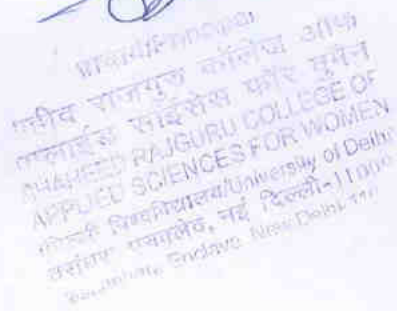 प्राचार्य/Principal
शहीद राजगुरु कॉलेज ऑफ
एप्लाईड साइंसेस फॉर वुमेन
SHAHEED RAJGURU COLLEGE OF
APPLIED SCIENCES FOR WOMEN
दिल्ली विश्वविद्यालय/University of Delhi
वसुंधरा एन्क्लेव, नई दिल्ली-11000
Enclave, New Delhi-110